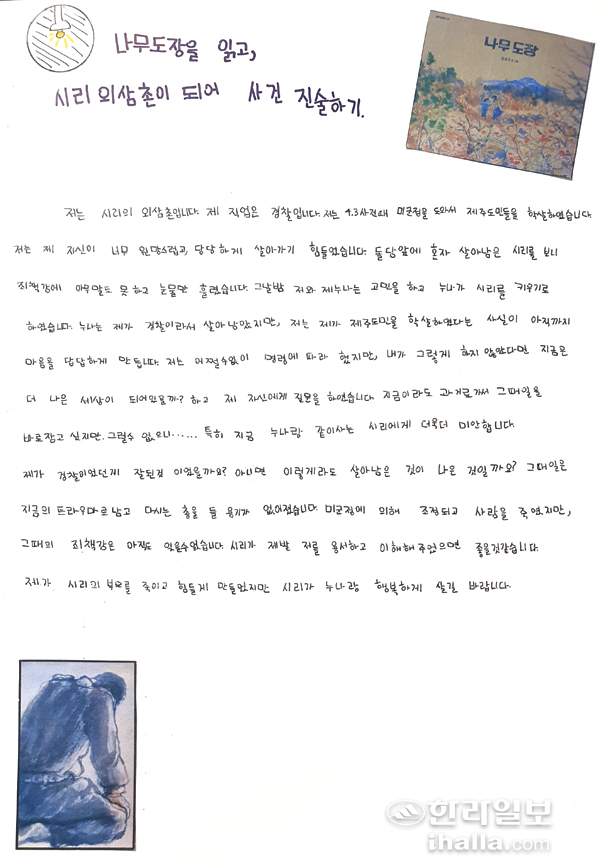 나무도장을 읽고,
시리 외삼촌이 되어 사건 진술하기.
나무 도장
저는 시리의 외삼촌입니다. 제 직업은 경찰입니다. 저는 4.3사건때 미군정을 도와서 제주도민들을 학살하였습니다.
저는 제 자신이 너무 원망스럽고, 당당하게 살아가기 힘들었습니다. 돌담앞에 혼자 살아남은 시리를 보니
죄책감에 아무말도 못 하고 눈물만 흘렸습니다. 그날밤 저와 제누나는 고민을 하고 누나가 시리를 키우기로
하였습니다. 누나는 제가 경찰이라서 살아남았지만, 저는 제가 제주도민을 학살하였다는 사실이 아직까지
마음을 답답하게 만듭니다. 저는 어쩔수없이 명령에 따라 했지만, 내가 그렇게 하지 않았다면 지금은
더 나은 세상이 되어있을까? 하고 제 자신에게 질문을 하였습니다. 지금이라도 과거로가서 그때일을
바로잡고 싶지만. 그럴수 없으니…… 특히 지금 누나랑 같이사는 시리에게 더욱더 미안합니다.
제가 경찰이었던게 잘된것 이었을까요? 아니면 이렇게라도 살아남은 것이 나은 것일까요? 그때일은
지금의 트라우마로 남고 다시는 총을 들 용기가 없어졌습니다. 미군정에 의해 조정되고 사람을 죽였지만,
그때의 죄책감은 아직도 잊을수없습니다. 시리가 제발 저를 용서하고 이해해 주었으면 좋을것같습니다.
제가 시리의 부모를 죽이고 힘들게 만들었지만 시리가 누나랑 행복하게 살길 바랍니다.
한라일보
ihalla.com